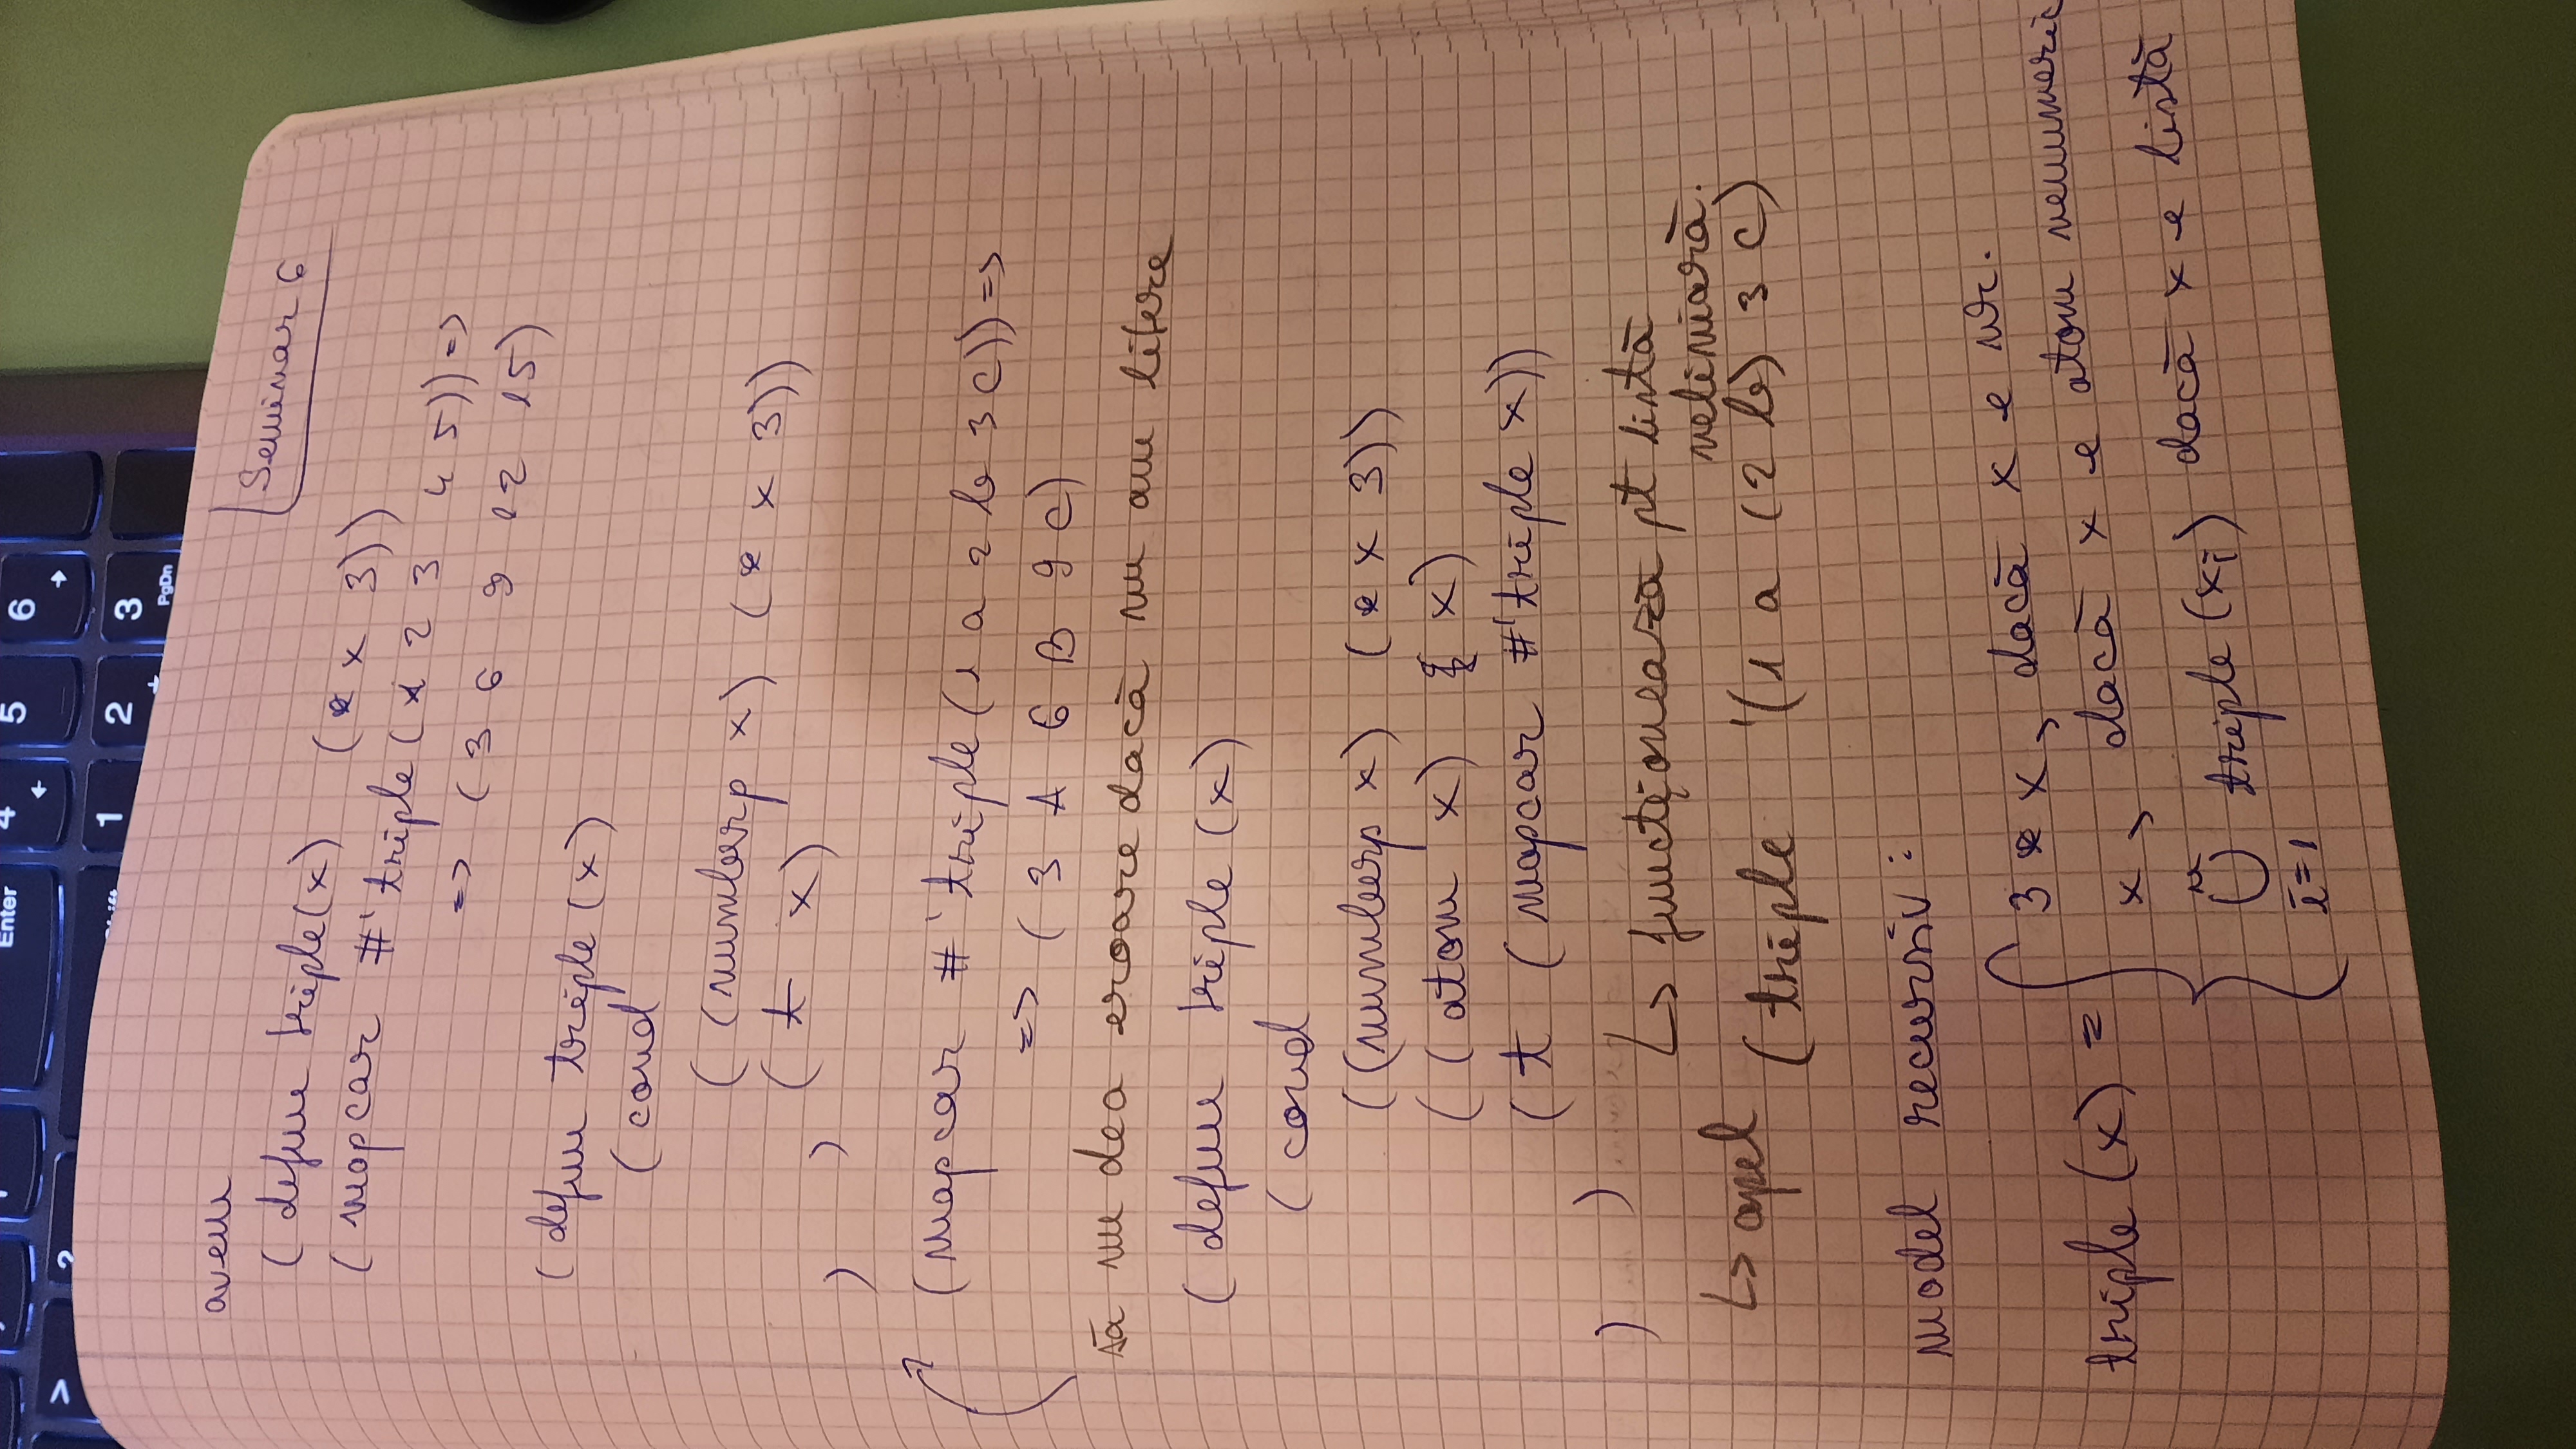 Enter
4
5
6
>
?
Shift
1
2
3
PgDn
avem
Seminar 6
(defun triple(x) (* x 3))
(mapcar #'triple(1 2 3 4 5)) =>
=> (3 6 9 12 15)
(defun triple (x)
(cond
((numberp x) (* x 3))
(t x)
) )
(mapcar #'triple(1 a 2 b 3 c)) =>
=> (3 A 6 B 9 C)
să nu dea eroare dacă nu am litere
(defun triple (x)
(cond
((numberp x) (* x 3))
((atom x) x)
(t (mapcar #'triple x))
) )
↳ funcționează pt listă
neliniară.
↳ apel (triple '(1 a (2 b) 3 c)
model recursiv:
triple (x) = { 3 * x, dacă x e nr.
x, dacă x e atom nenumeric
n
∪ triple(xi) dacă x e listă
i=1